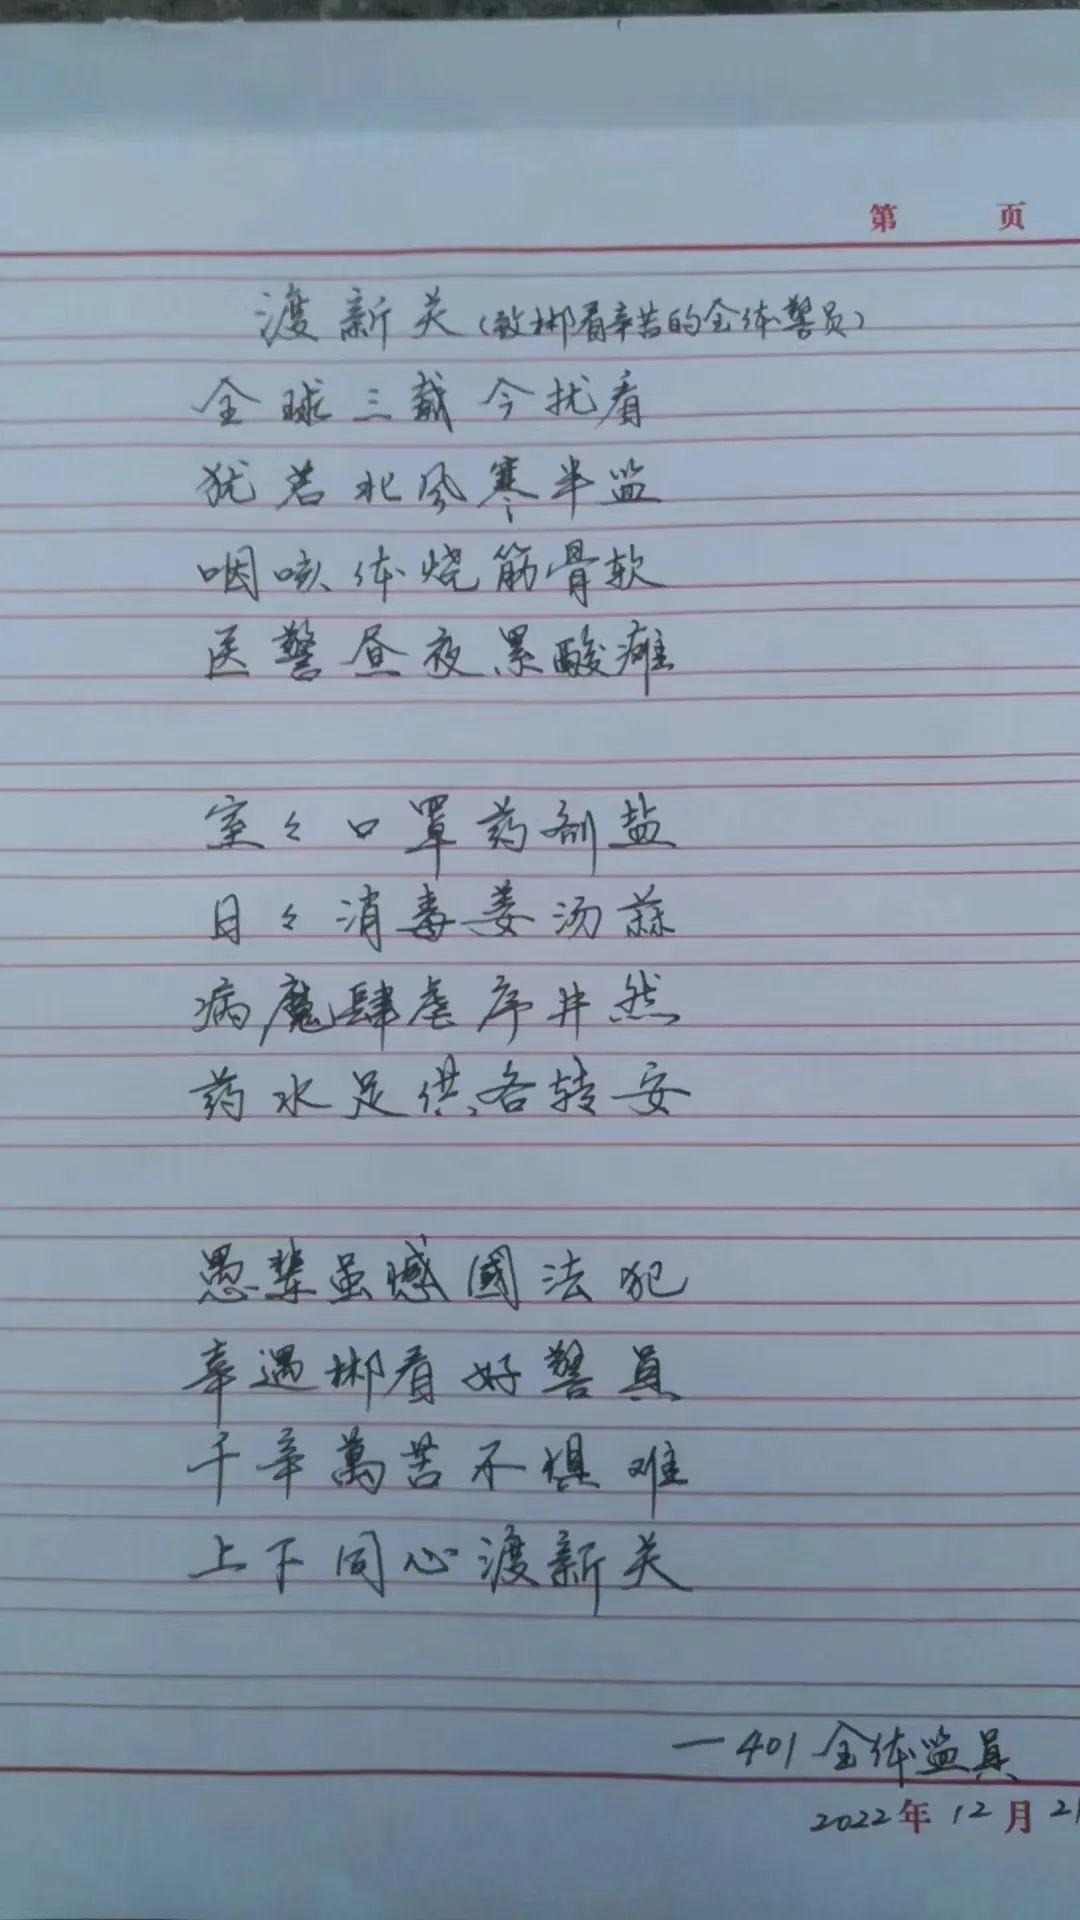 第 页
渡新关(致郴看辛苦的全体警员)
全球三载今扰看
犹若北风寒半监
咽咳体烧筋骨软
医警昼夜累酸瘫
室々口罩药剂盐
日々消毒姜汤蒜
病魔肆虐序井然
药水足供各转安
愚辈虽憾國法犯
幸遇郴看好警員
千辛萬苦不惧难
上下同心渡新关
一401全体监員
2022年12月21